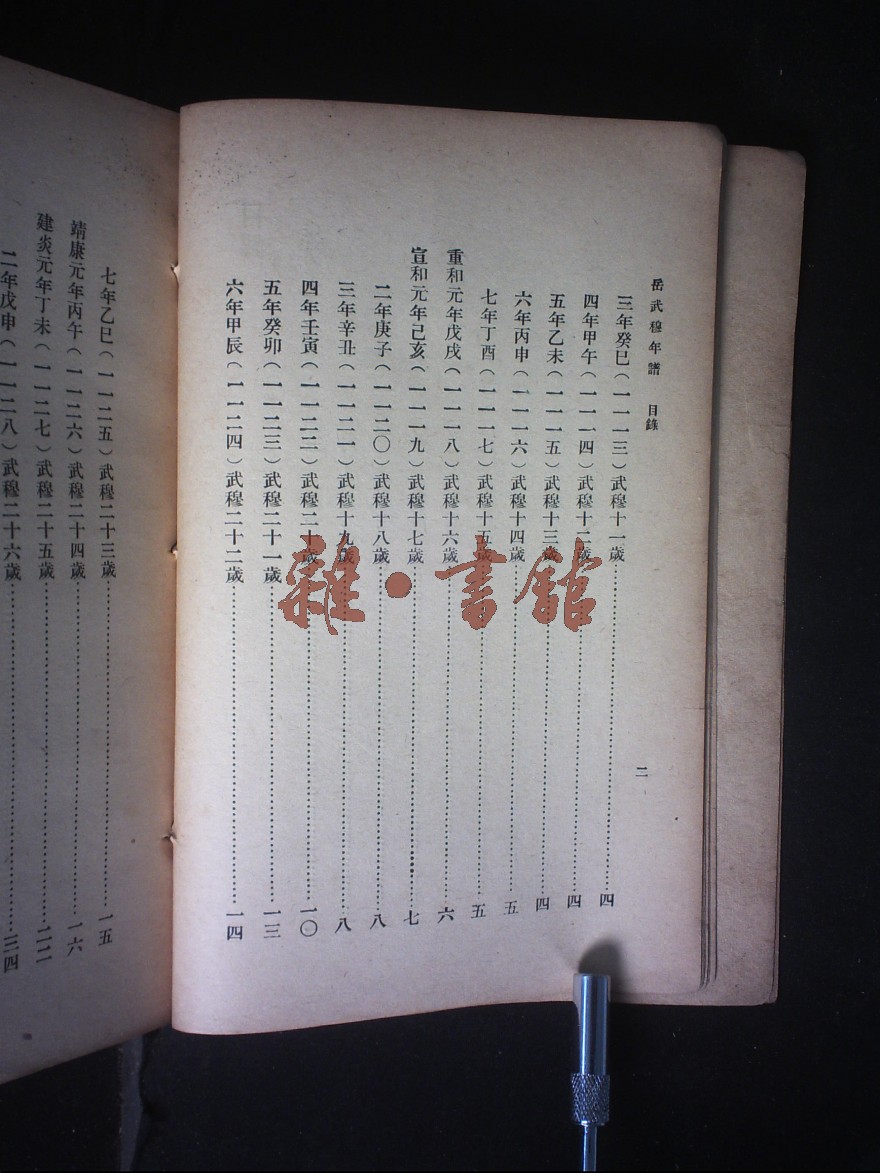 岳武穆年譜 目錄
二
三年癸巳(一一一三)武穆十一歲…………四
四年甲午(一一一四)武穆十二歲…………四
五年乙未(一一一五)武穆十三歲…………四
六年丙申(一一一六)武穆十四歲…………五
七年丁酉(一一一七)武穆十五歲…………五
重和元年戊戌(一一一八)武穆十六歲…………六
宣和元年己亥(一一一九)武穆十七歲…………七
二年庚子(一一二〇)武穆十八歲…………八
三年辛丑(一一二一)武穆十九歲…………八
四年壬寅(一一二二)武穆二十歲…………一〇
五年癸卯(一一二三)武穆二十一歲…………一三
六年甲辰(一一二四)武穆二十二歲…………一四
七年乙巳(一一二五)武穆二十三歲…………一五
靖康元年丙午(一一二六)武穆二十四歲…………一六
建炎元年丁未(一一二七)武穆二十五歲…………二二
二年戊申(一一二八)武穆二十六歲…………三四
雜·書館